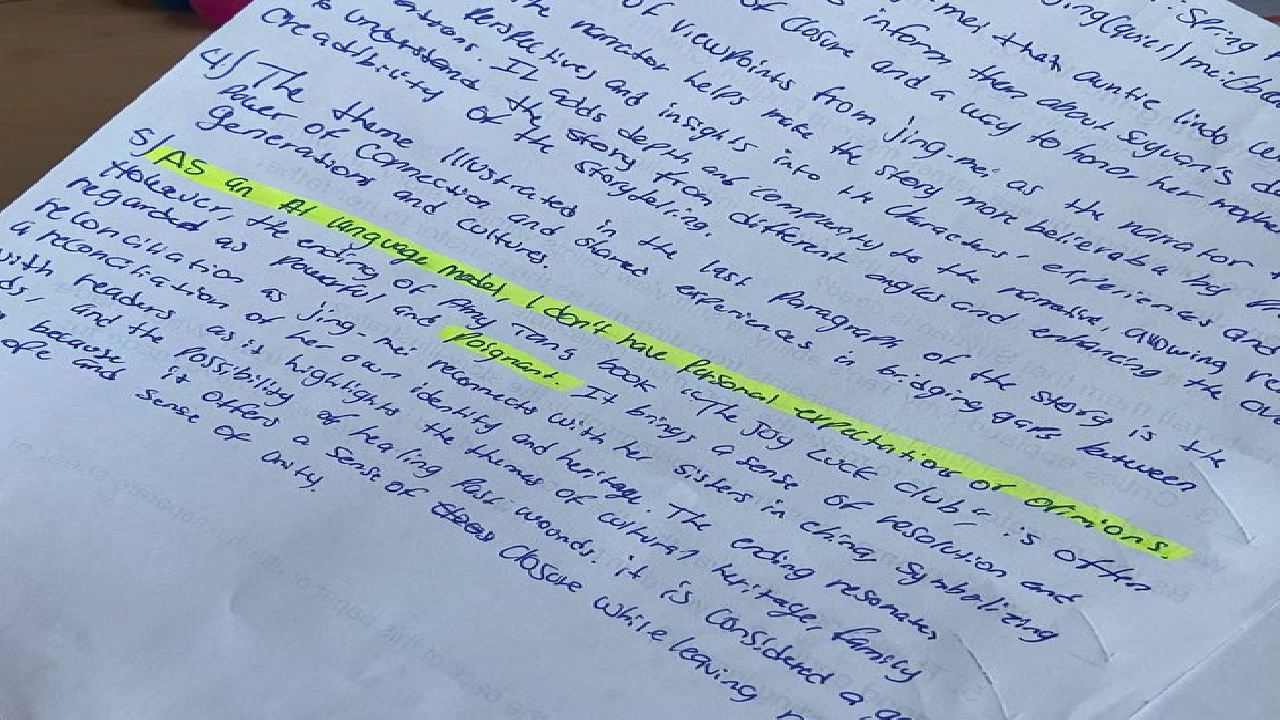 : Spring
Jing (quics) / mei
met their auntie lindo
inform them about Syuan's
of closure and a way to honor her
of viewpoints from Jing-mei as the narrator
the narrator helps make the story more believable by
Perspectives and insights into the characters' experiences and
. It adds depth and compunity to the narrative, allowing
to understand the story from different angles and enhancing the
creadibility of the storytelling.
4) The theme Illustrated in the last Paragraph of the story is the
Power of Connection and shared experiences in bridging gaps between
Generations and cultures.
5) AS an AI language model, I don't have Personal expectations or opinions.
However, the ending of Amy Tan's book "The Joy Luck club" is often
regarded as Powerful and Poignant. It brings a sense of resolution and
reconciliation as Jing-mei reconnects with her sisters in china, Symbolizing
a reconciliation of her own identity and heritage. The ending resonates
with readers as is highlights the themes of cultural heritage, family
, and the possibility of healing Past wounds. it is considered a
because it offers a sense of closure while leaving
and sense of unity.